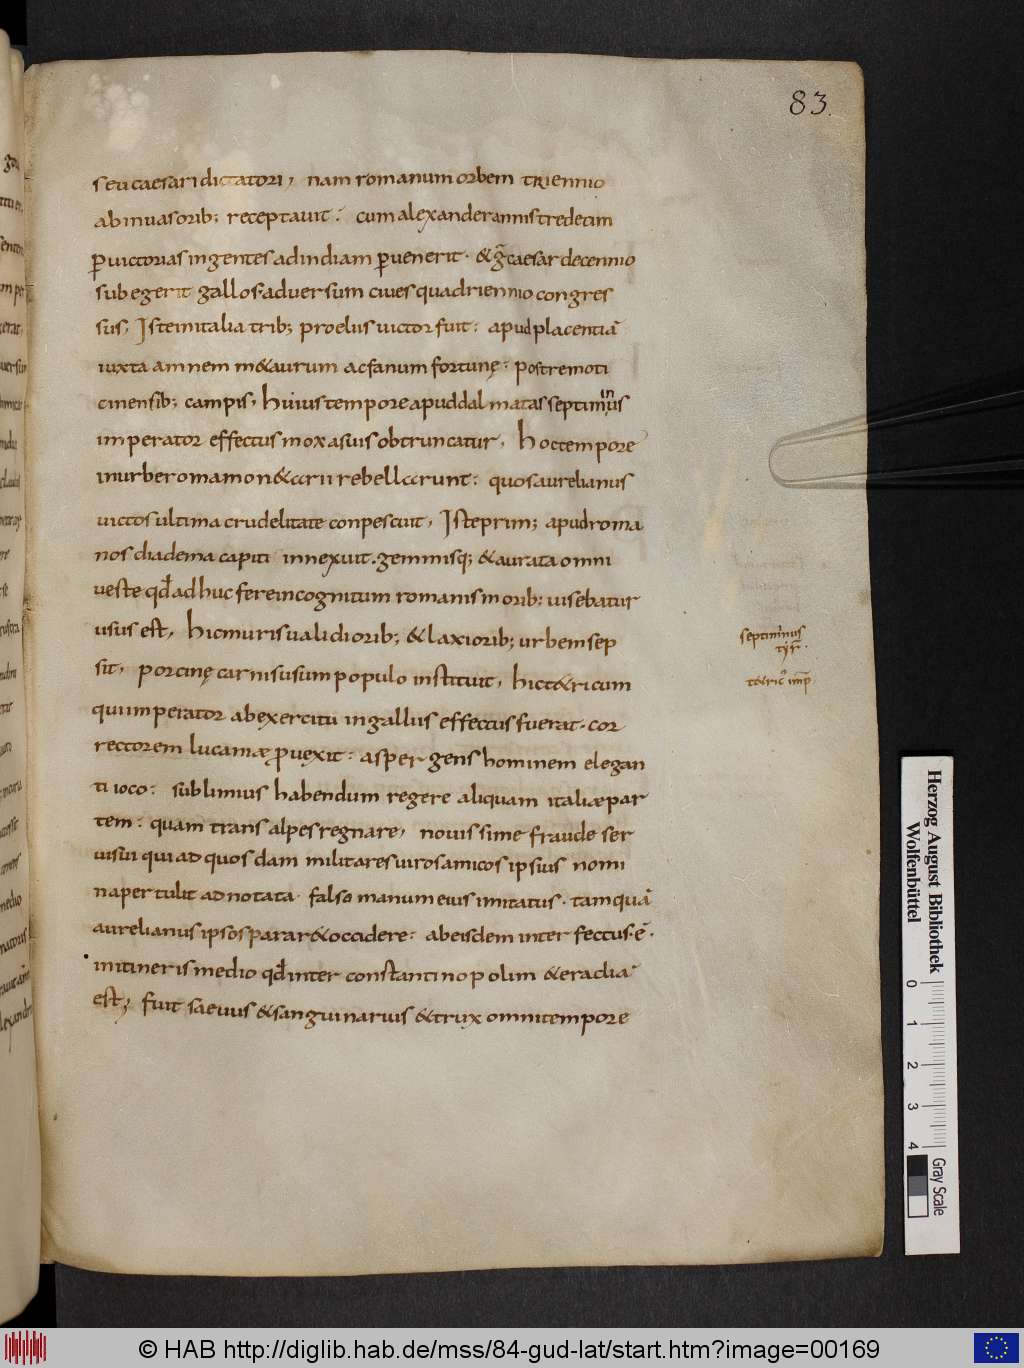 83.
seu caesari dictatori, nam romanum orbem triennio
ab inuasorib; receptauit: cum alexander annis tredecim
ꝑ uictorias ingentes ad indiam ꝑuenerit. & g̃ caesar decennio
subegerit gallos aduersum ciues quadriennio congres
sus, Iste in italia trib; proeliis uictor fuit: apud placentiã
iuxta amnem m&aurum ac fanum fortunę: postremo ti
cinensib; campis, huius tempore apud dalmatas septiminus
imperator effectus mox a suis obtruncatur, hoc tempore
in urbe roma mon&arii rebellarunt: quos aurelianus
uictos ultima crudelitate conpescuit, Iste prim; apud roma
nos diadema capiti innexuit. gemmisq; & aurata omni
ueste qđ adhuc fere incognitum romanis morib; uisebatur
usus est, hic muris ualidiorib; & laxiorib; urbem sep
sit, porcinę carnis usum populo instituit, hic t&ricum
qui imperator ab exercitu in galliis effectus fuerat. cor
rectorem lucaniæ ꝓuęxit: aspergens hominem elegan
ti ioco: sublimius habendum regere aliquam italiæ par
tem: quam trans alpes regnare, nouissime fraude ser
ui sui qui ad quosdam militares uiros amicos ipsius nomi
na pertulit adnotata. falso manum eius imitatus. tamquã
aurelianus ipsos parar& occidere: ab eisdem interfectus. ẽ.
in itineris medio qđ inter constantinopolim & eracliã
est, fuit saeuus & sanguinarius & trux omni tempore
septiminus
tyr̃.
t&ric᾽ imp̃
Herzog August Bibliothek
Wolfenbüttel
0 1 2 3 4
Gray Scale
© HAB http://diglib.hab.de/mss/84-gud-lat/start.htm?image=00169